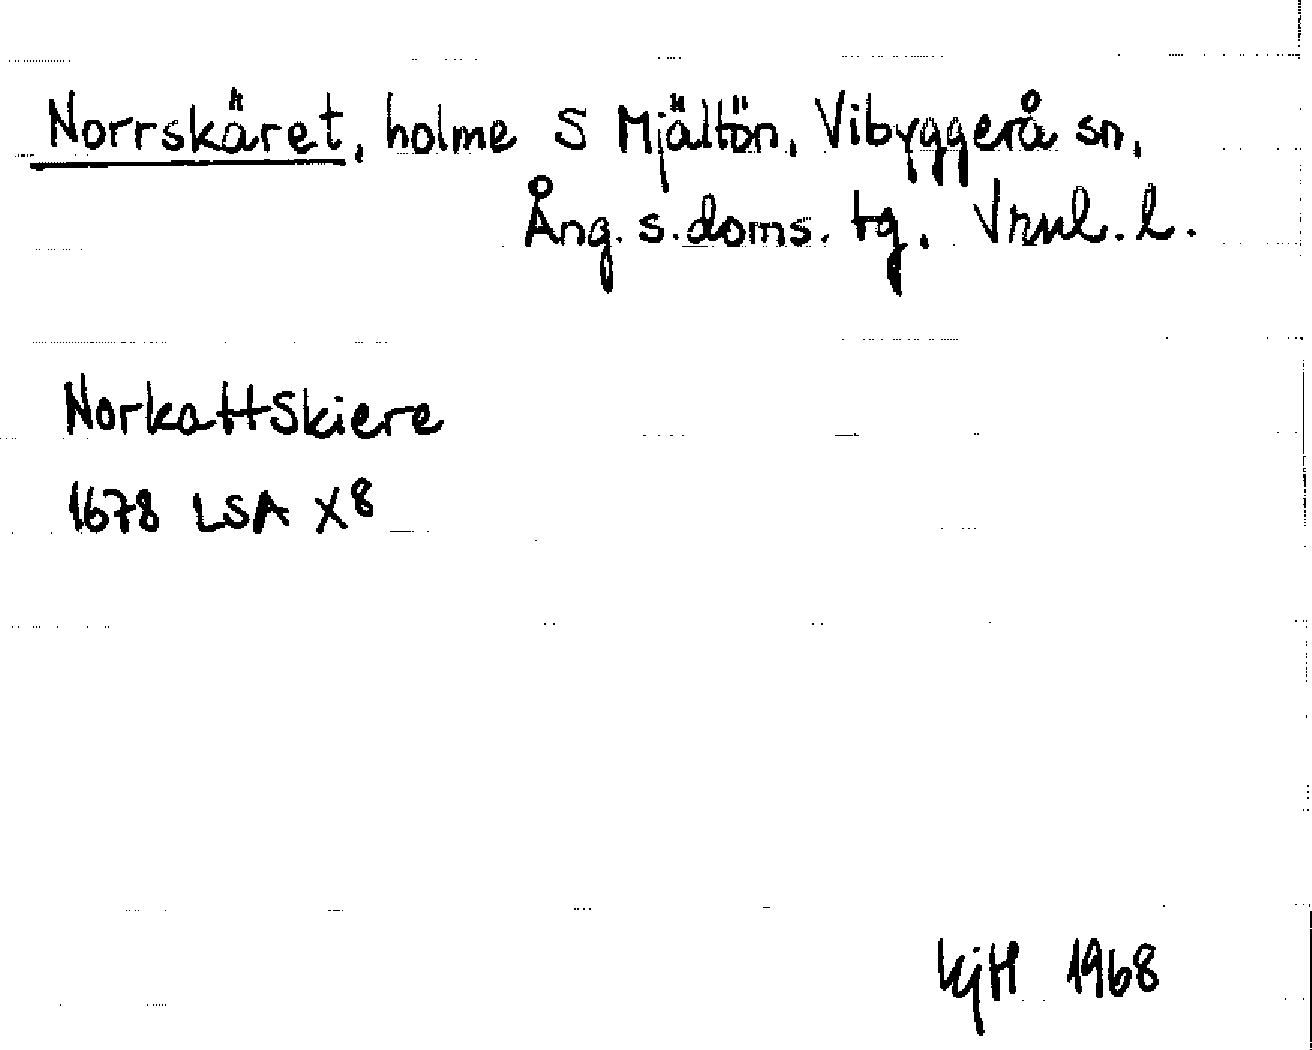 Norrskäret, holme S Mjältön, Vibyggerå sn,
Ång. s. doms. tg. Vrnl. l.
NorkattSkiere
1678 LSA X8
KjH 1968